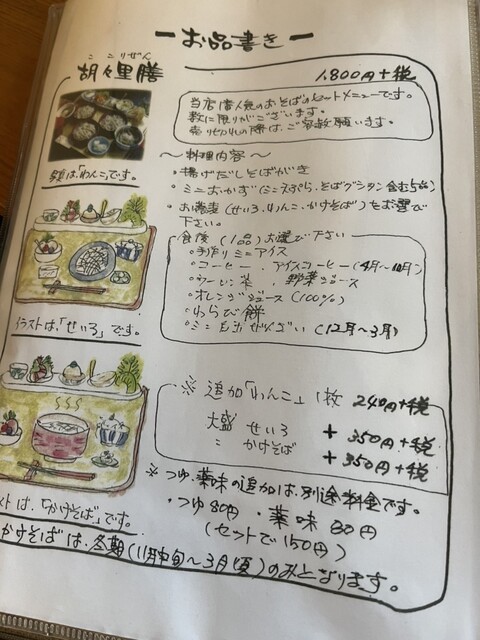 ーお品書きー
ここりぜん
胡々里膳
1,800円+税
当店一番人気のおそばのセットメニューです。
数に限りがございます。
売り切れの際は、ご容赦願います。
写真は、「わんこ」です。
〜料理内容〜
・揚げだしそばがき
・ミニおかず(にこ天ぷら、そばグラタン含む5品)
・お蕎麦(せいろ、わんこ、かけそば)をお選び
下さい。
食後(1品)お選び下さい
・手作りミニアイス
・コーヒー・アイスコーヒー(4月〜10月)
・野菜ジュース
・オレンジジュース(100%)
・わらび餅
・ミニぜんざい(12月〜3月)
イラストは、「せいろ」です。
※追加「わんこ」1枚 240円+税
大盛 せいろ +350円+税
〃 かけそば +350円+税
※つゆ・薬味の追加は、別途料金です。
・つゆ80円・薬味80円
(セットで150円)
ストは、「かけそば」です。
かけそばは、冬期(11月中旬〜3月(頃)のみとなります。